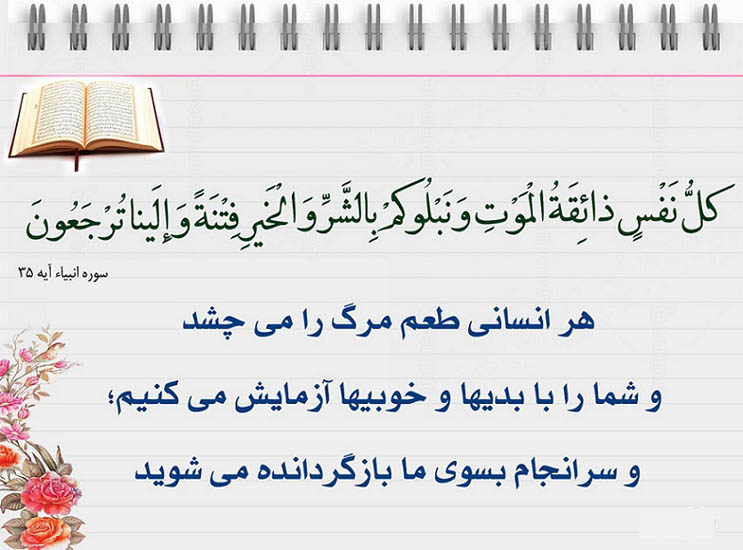 كُلُّ نَفْسٍ ذائِقَةُ الْمَوْتِ وَ نَبْلُوكُمْ بِالشَّرِّ وَ الْخَيْرِ فِتْنَةً وَ إِلَينا تُرْجَعُونَ
سوره انبیاء آیه ۳۵
هر انسانی طعم مرگ را می چشد
و شما را با بدیها و خوبیها آزمایش می کنیم؛
و سرانجام بسوی ما بازگردانده می شوید